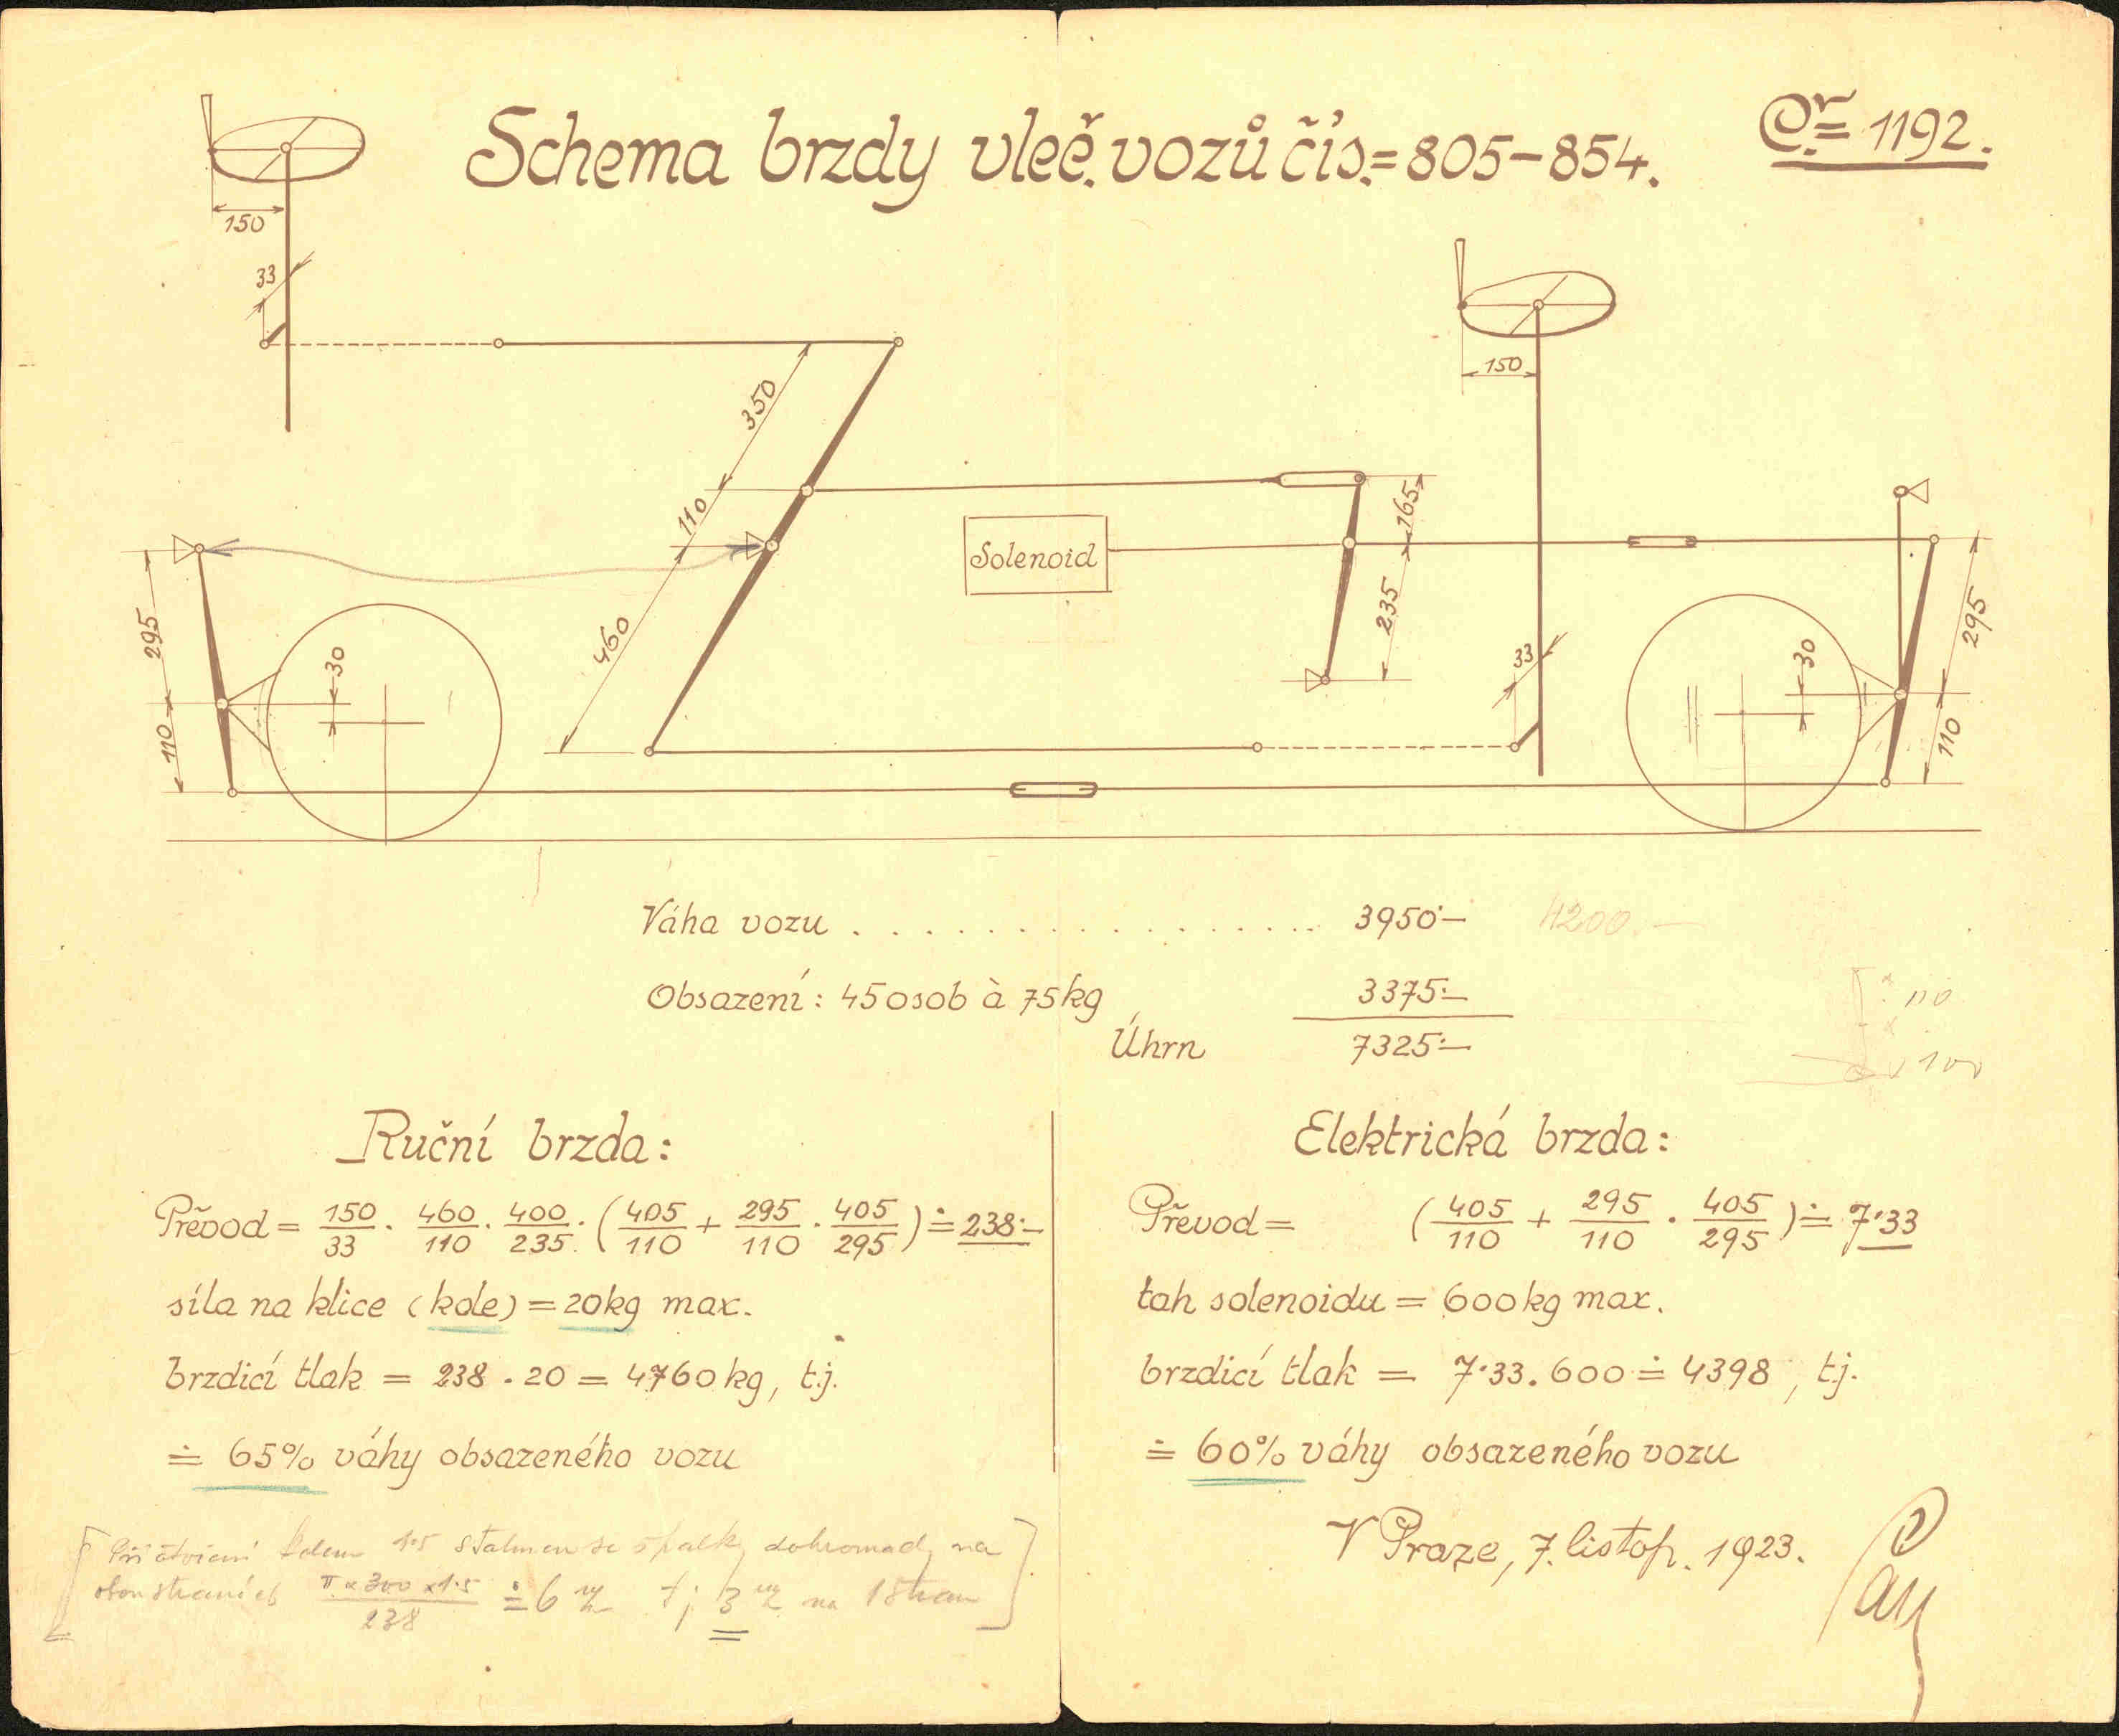 Schema brzdy vleč. vozů čís.= 805–854.
Čr= 1192.
150
33
350
110
460
295
110
30
Solenoid
165
235
150
33
30
295
110
Váha vozu . . . . . . . . . . . . . . . . 3950·– 4200.–
Obsazení: 45 osob à 75 kg 3375·–
Úhrn 7325·–
110
100
Ruční brzda:
Převod = 150/33 · 460/110 · 400/235 · (405/110 + 295/110 · 405/295) ≐ 238·–
síla na klice (kole) = 20 kg max.
brzdicí tlak = 238 . 20 = 4760 kg, t.j.
≐ 65% váhy obsazeného vozu
kolem 1·5 špalky dohromady na
π x 300 x 1·5 / 238 ≐ 6 tj 3 na 1 stran
Elektrická brzda:
Převod = (405/110 + 295/110 · 405/295) ≐ 7·33
tah solenoidu = 600 kg max.
brzdicí tlak = 7·33 . 600 ≐ 4398, t.j.
≐ 60% váhy obsazeného vozu
V Praze, 7. listop. 1923.